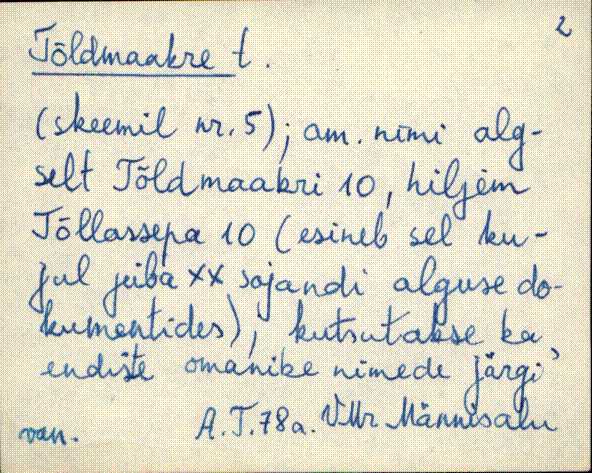 2
Tõldmaakre t.
(skeemil nr. 5); am. nimi alg-
selt Tõldmaakri 10, hiljem
Tõllassepa 10 (esineb sel ku-
jul juba XX sajandi alguse do-
kumentides), kutsutakse ka
endiste omanike nimede järgi,
van. A. T. 78 a. VMr Männisalu